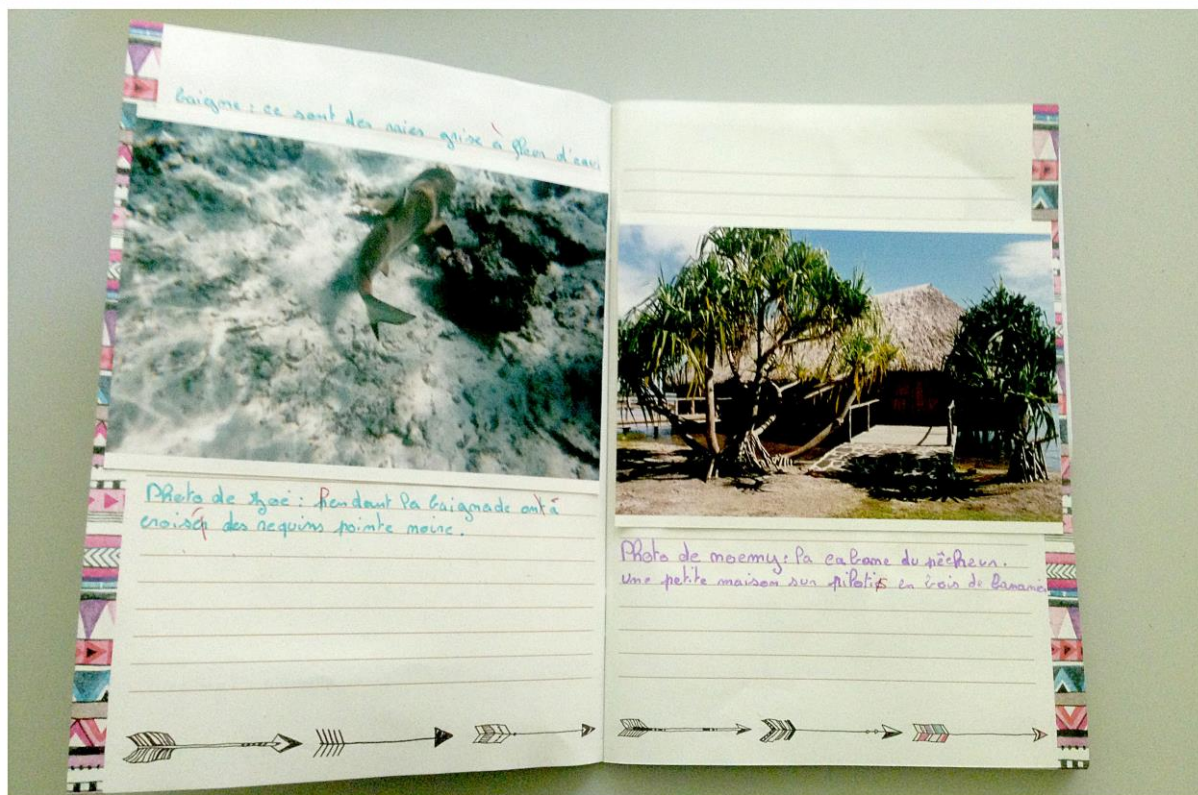 baigne : ce sont des raies grise à fleur d'eau.
Photo de zoé : Pendant la baignade ont à
croisé des requins pointe noire.
Photo de noemy : la cabane du pêcheur.
une petite maison sur pilotis en bois de bananier